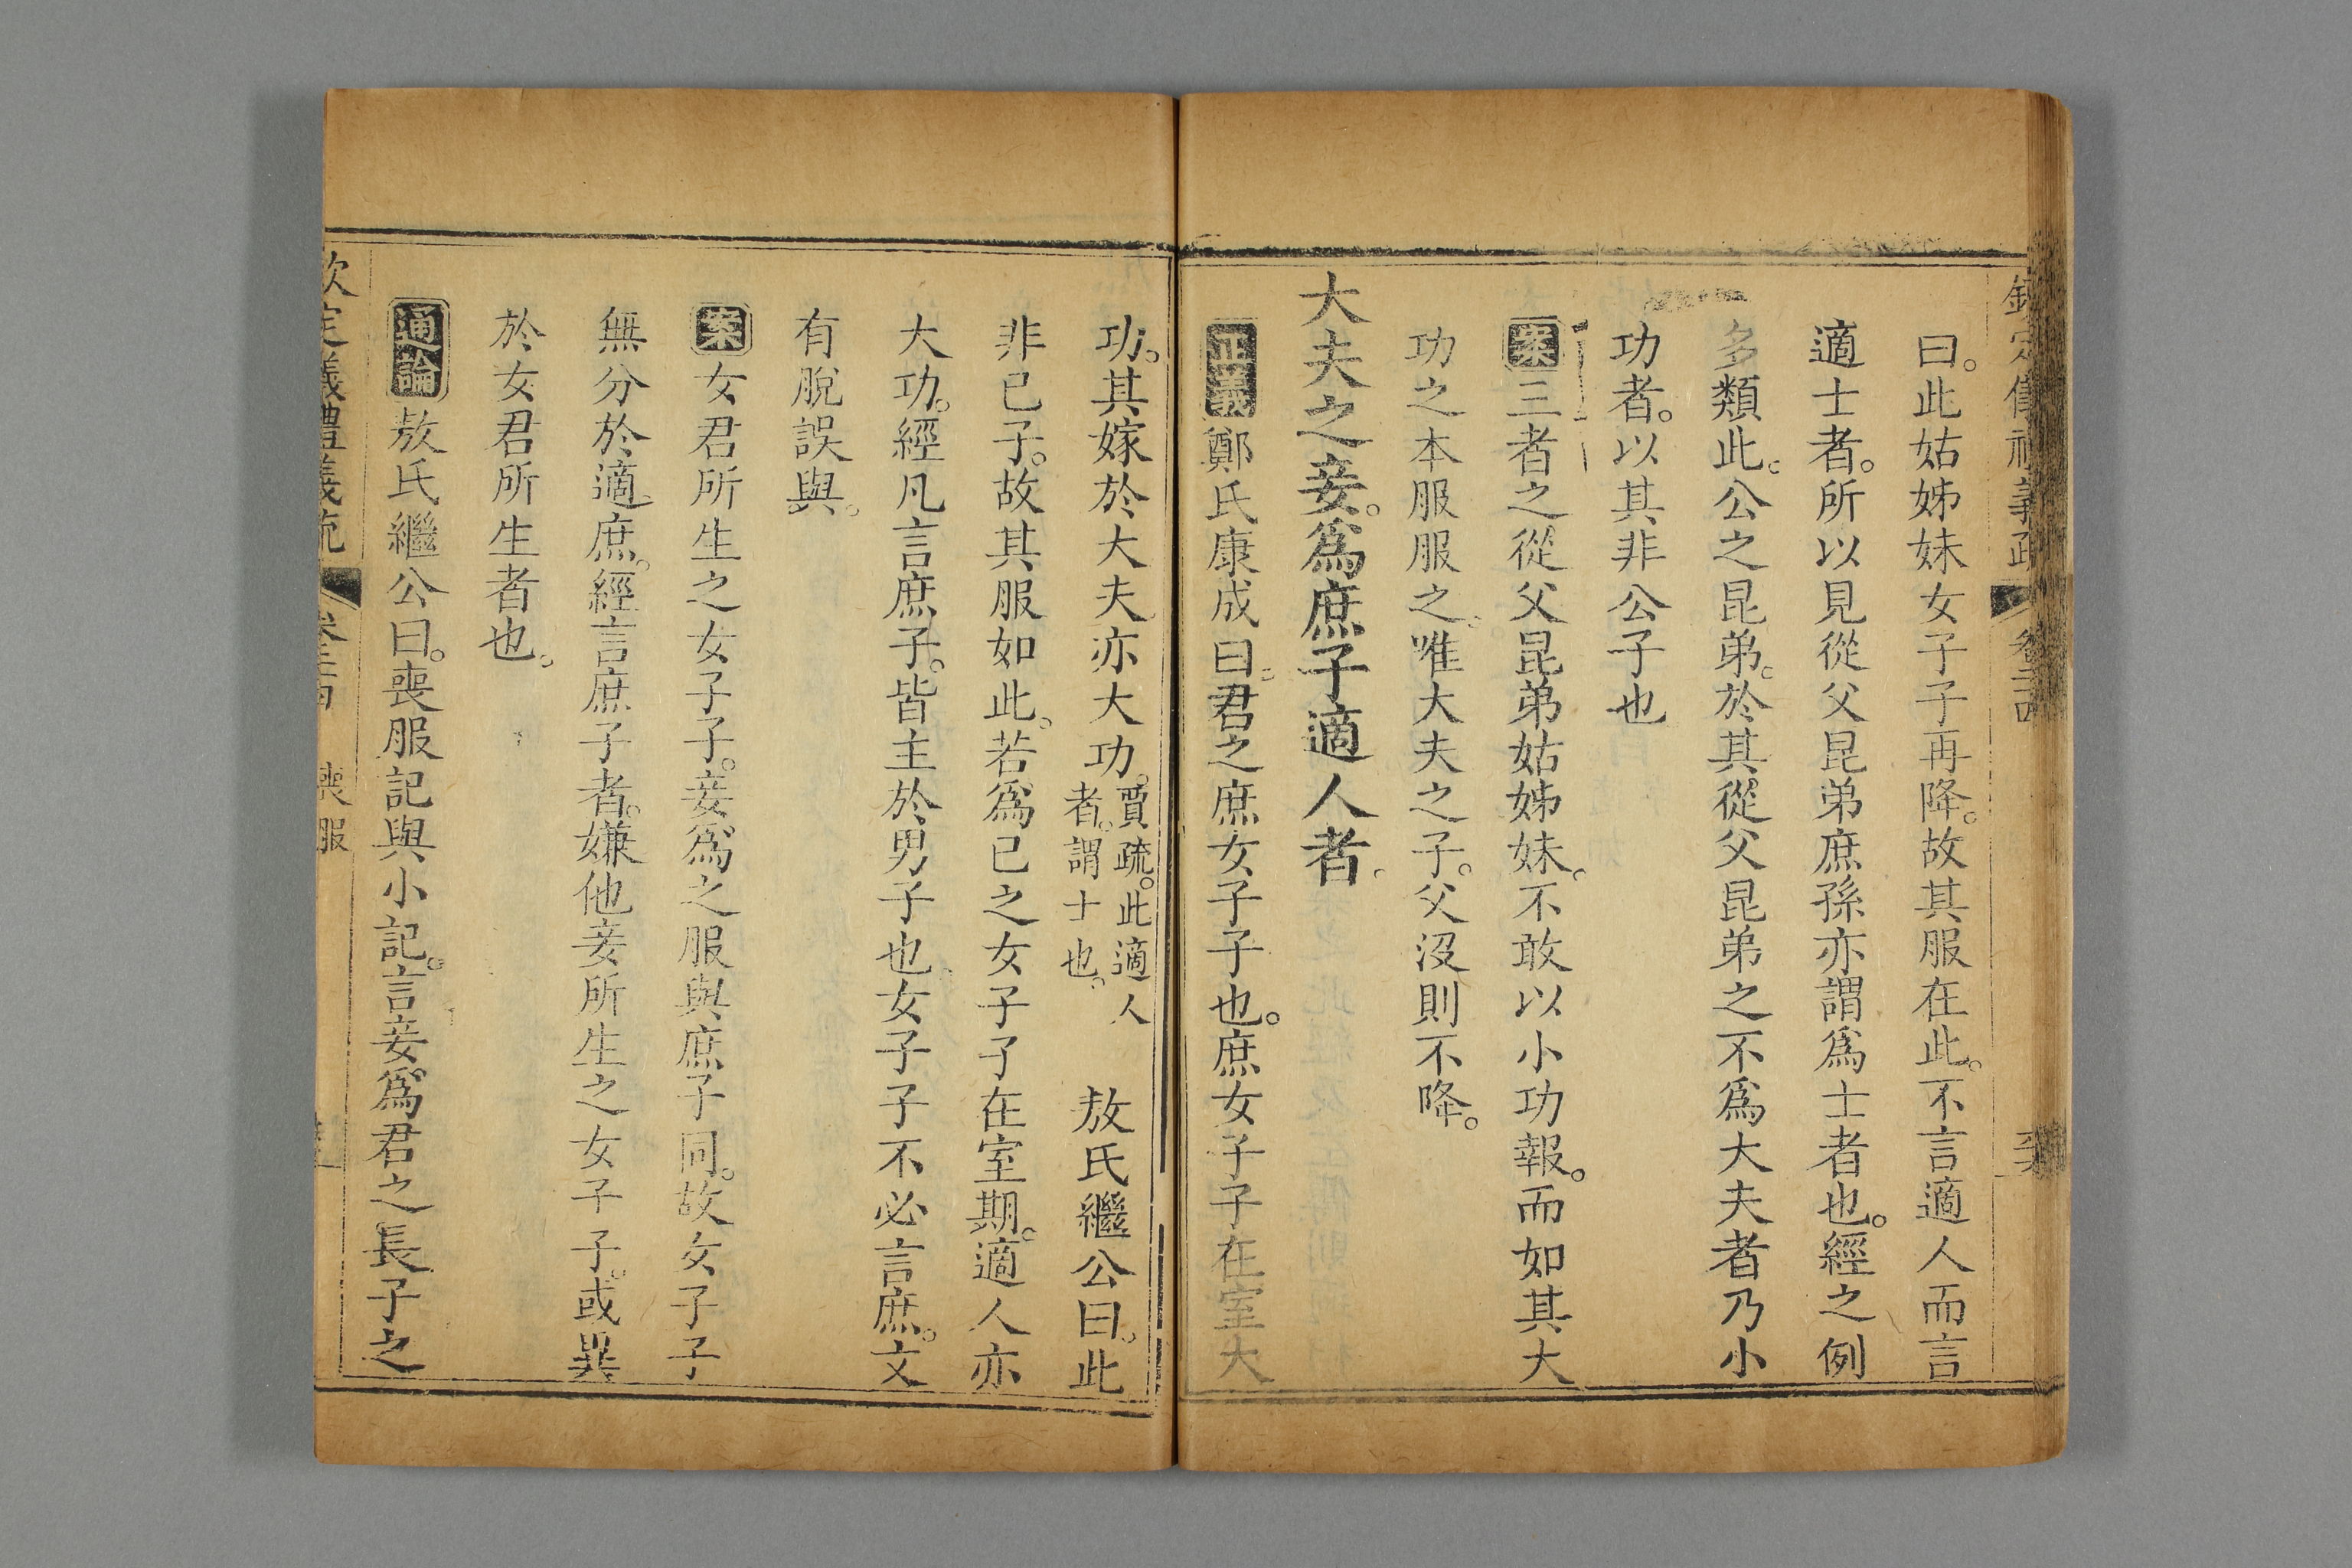 欽定儀禮義疏 卷二十四
曰。此姑姊妹女子子再降。故其服在此。不言適人而言
適士者。所以見從父昆弟庶孫亦謂爲士者也。經之例
多類此。公之昆弟。於其從父昆弟之不爲大夫者乃小
功者。以其非公子也
案三者之從父昆弟姑姊妹。不敢以小功報。而如其大
功之本服服之。唯大夫之子。父沒則不降。
大夫之妾。爲庶子適人者。
正義鄭氏康成曰。君之庶女子子也。庶女子子在室大
功。其嫁於大夫亦大功。賈疏。此適人
者。謂士也。
敖氏繼公曰。此
非已子。故其服如此。若爲已之女子子在室期。適人亦
大功。經凡言庶子。皆主於男子也。女子子不必言庶。文
有脫誤與。
案女君所生之女子子。妾爲之服與庶子同。故女子子
無分於適庶。經言庶子者。嫌他妾所生之女子子。或異
於女君所生者也。
通論敖氏繼公曰。喪服記與小記。言妾爲君之長子之
欽定儀禮義疏 卷二十四 喪服